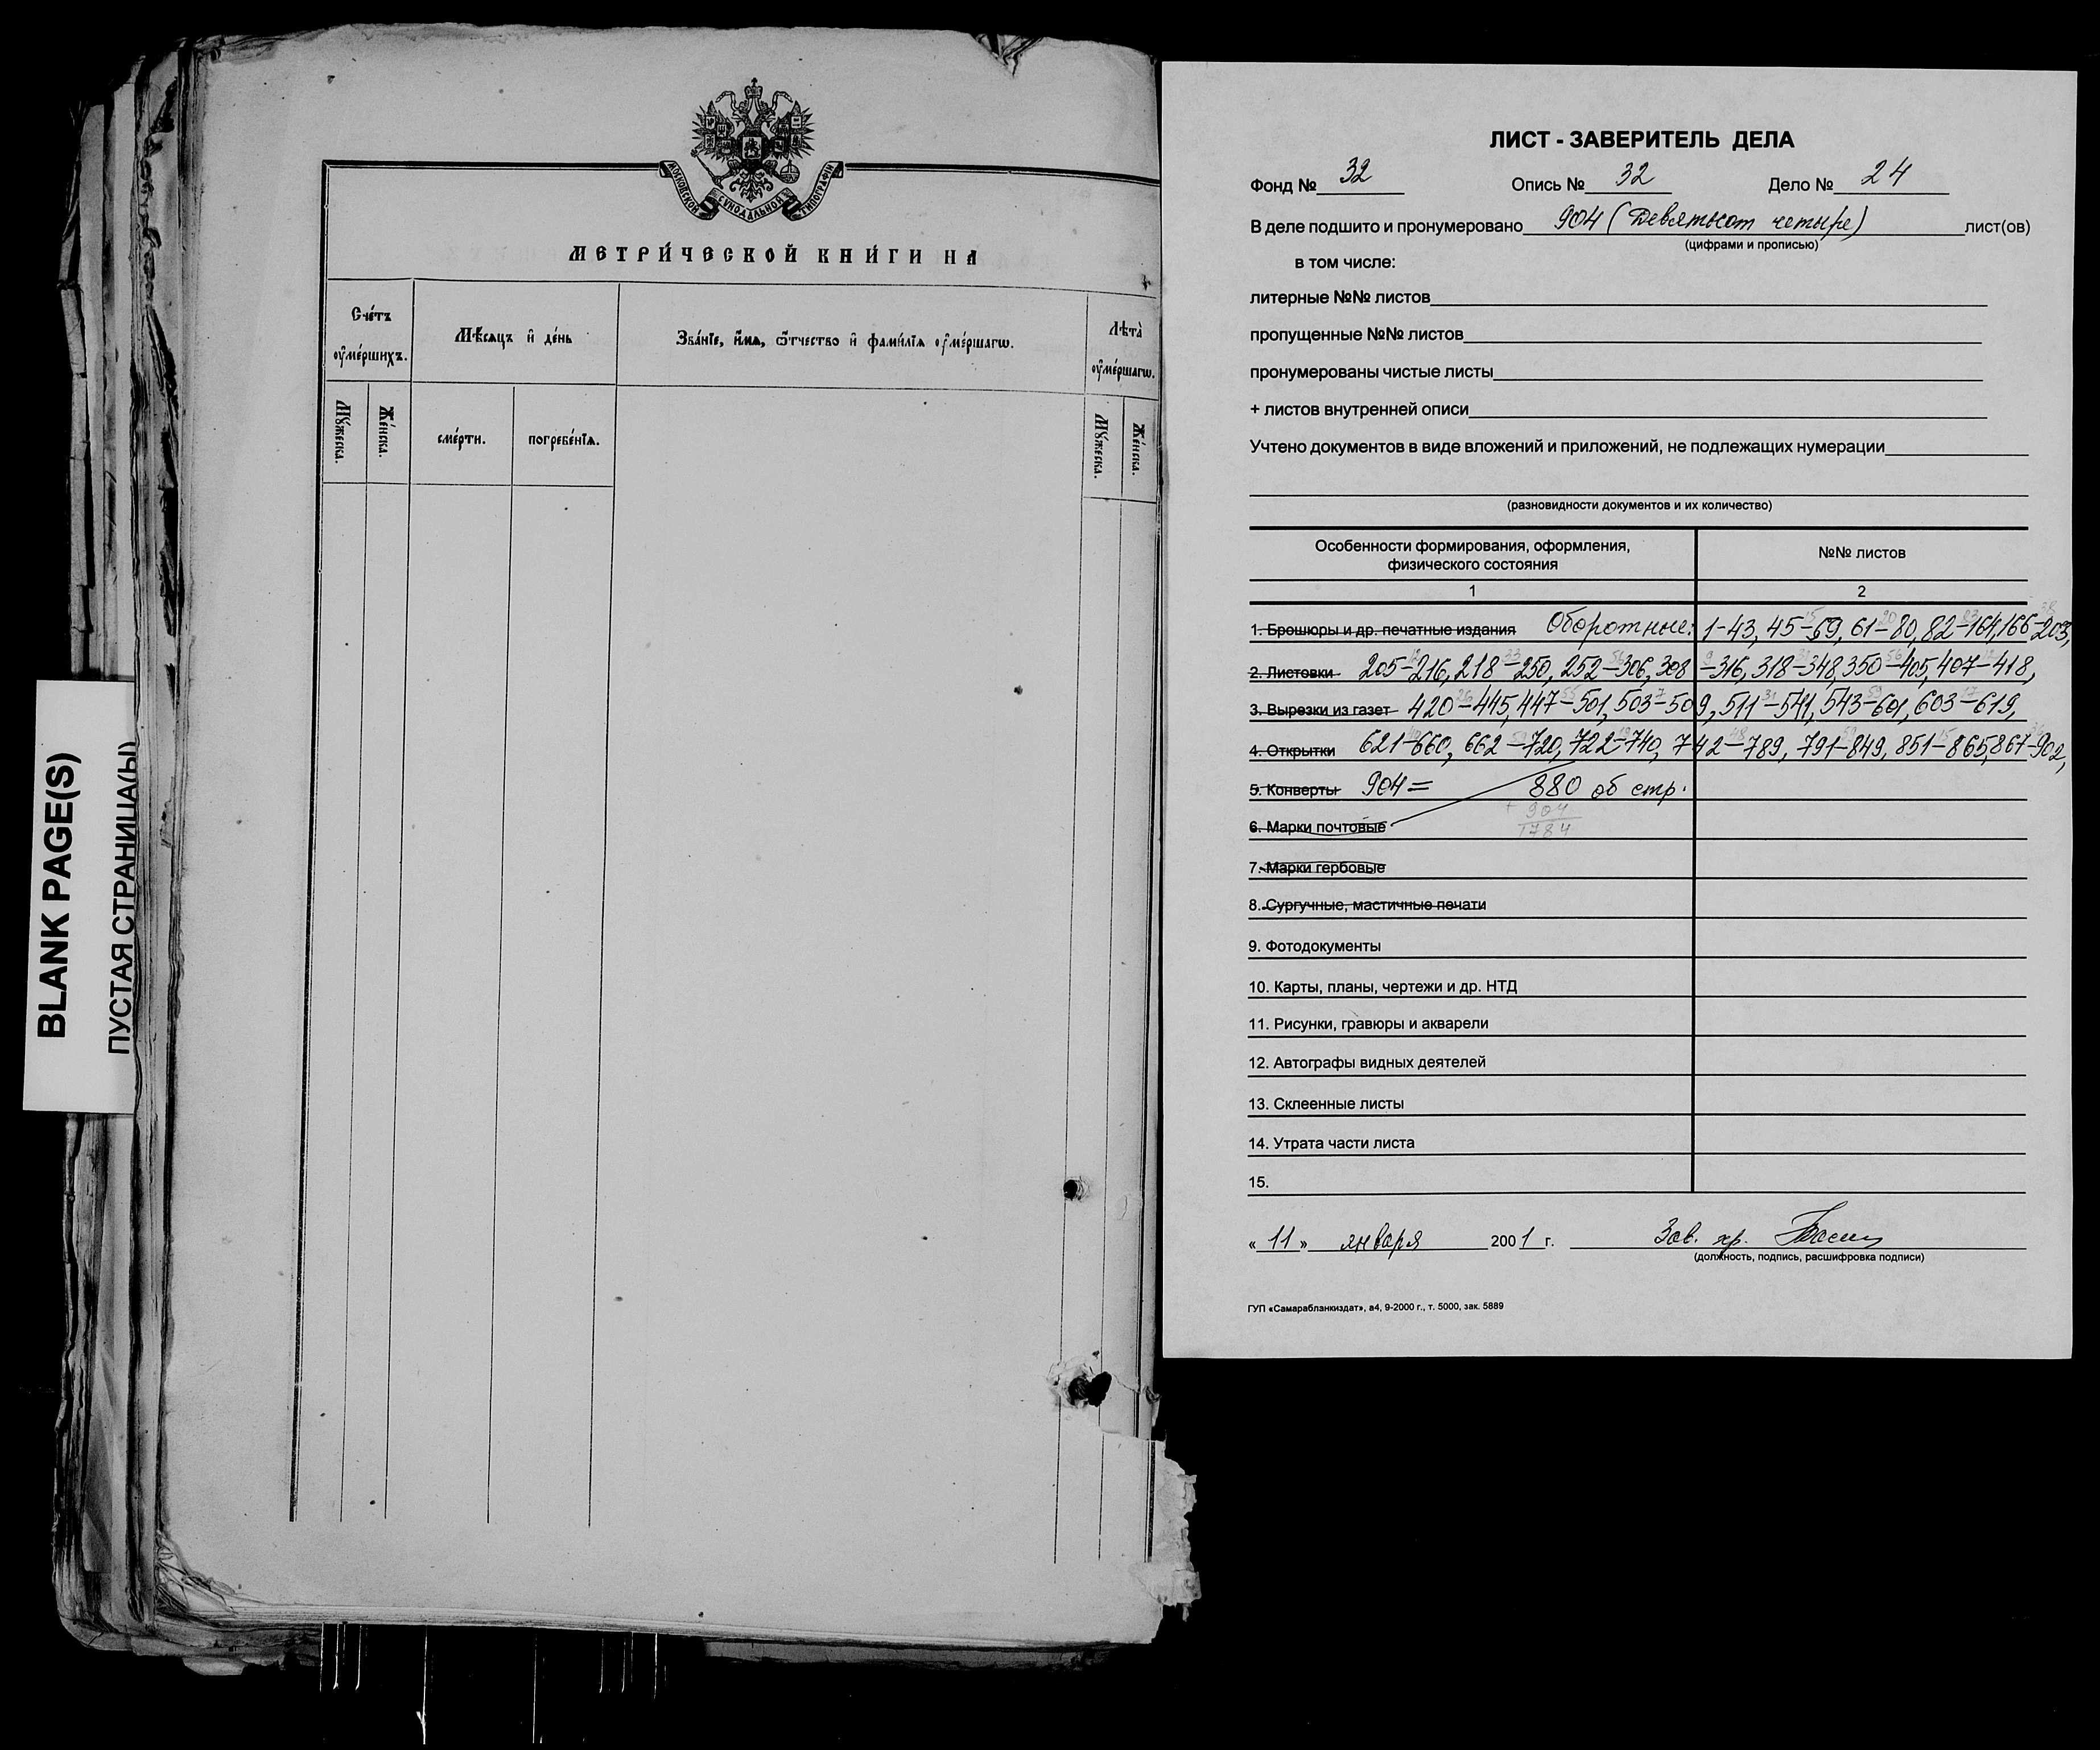 BLANK PAGE(S)
ПУСТАЯ СТРАНИЦА(Ы)
МОСКОВСКОЙ СѴНОДАЛЬНОЙ ТИПОГРАФІИ
МЕТРИ́ЧЕСКОЙ КНИ́ГИ НА
Сче́тъ ᲂу҆ме́ршихъ.
Мꙋ́жеска.
Же́нска.
Мѣ́сяцъ и҆ де́нь
сме́рти.
погребе́нїѧ.
Зва́нїе, и҆́мѧ, ѻ҆́тчество и҆ фами́лїѧ ᲂу҆ме́ршагѡ.
Лѣ́та ᲂу҆ме́ршагѡ.
Мꙋ́жеска.
Же́нска.
ЛИСТ - ЗАВЕРИТЕЛЬ ДЕЛА
Фонд № 32 Опись № 32 Дело № 24
В деле подшито и пронумеровано 904 (Девятьсот четыре) лист(ов)
(цифрами и прописью)
в том числе:
литерные №№ листов
пропущенные №№ листов
пронумерованы чистые листы
+ листов внутренней описи
Учтено документов в виде вложений и приложений, не подлежащих нумерации
(разновидности документов и их количество)
Особенности формирования, оформления,
физического состояния
№№ листов
1 2
1. Брошюры и др. печатные издания Оборотные: 1-43, 45-59, 61-80, 82-164, 166-203,
2. Листовки 205-216, 218-250, 252-306, 308-316, 318-348, 350-405, 407-418,
3. Вырезки из газет 420-445, 447-501, 503-509, 511-541, 543-601, 603-619,
4. Открытки 621-660, 662-720, 722-740, 742-789, 791-849, 851-865, 867-902,
5. Конверты 904= 880 об стр.
+ 904
1784
6. Марки почтовые
7. Марки гербовые
8. Сургучные, мастичные печати
9. Фотодокументы
10. Карты, планы, чертежи и др. НТД
11. Рисунки, гравюры и акварели
12. Автографы видных деятелей
13. Склеенные листы
14. Утрата части листа
15.
« 11 » января 2001 г. Зав. хр.
(должность, подпись, расшифровка подписи)
ГУП «Самарабланкиздат», а4, 9-2000 г., т. 5000, зак. 5889